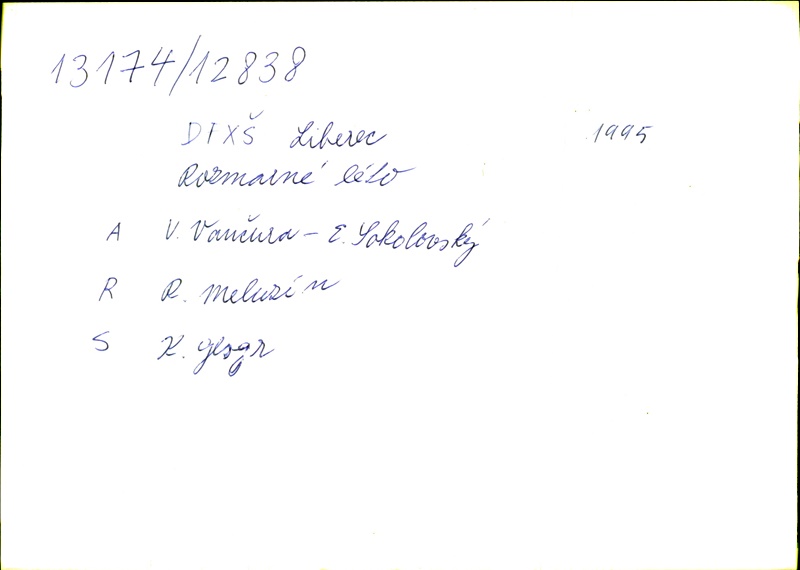 13174/12838
DFXŠ Liberec 1995
Rozmarné léto
A V. Vančura - E. Sokolovský
R R. Meluzín
S K.